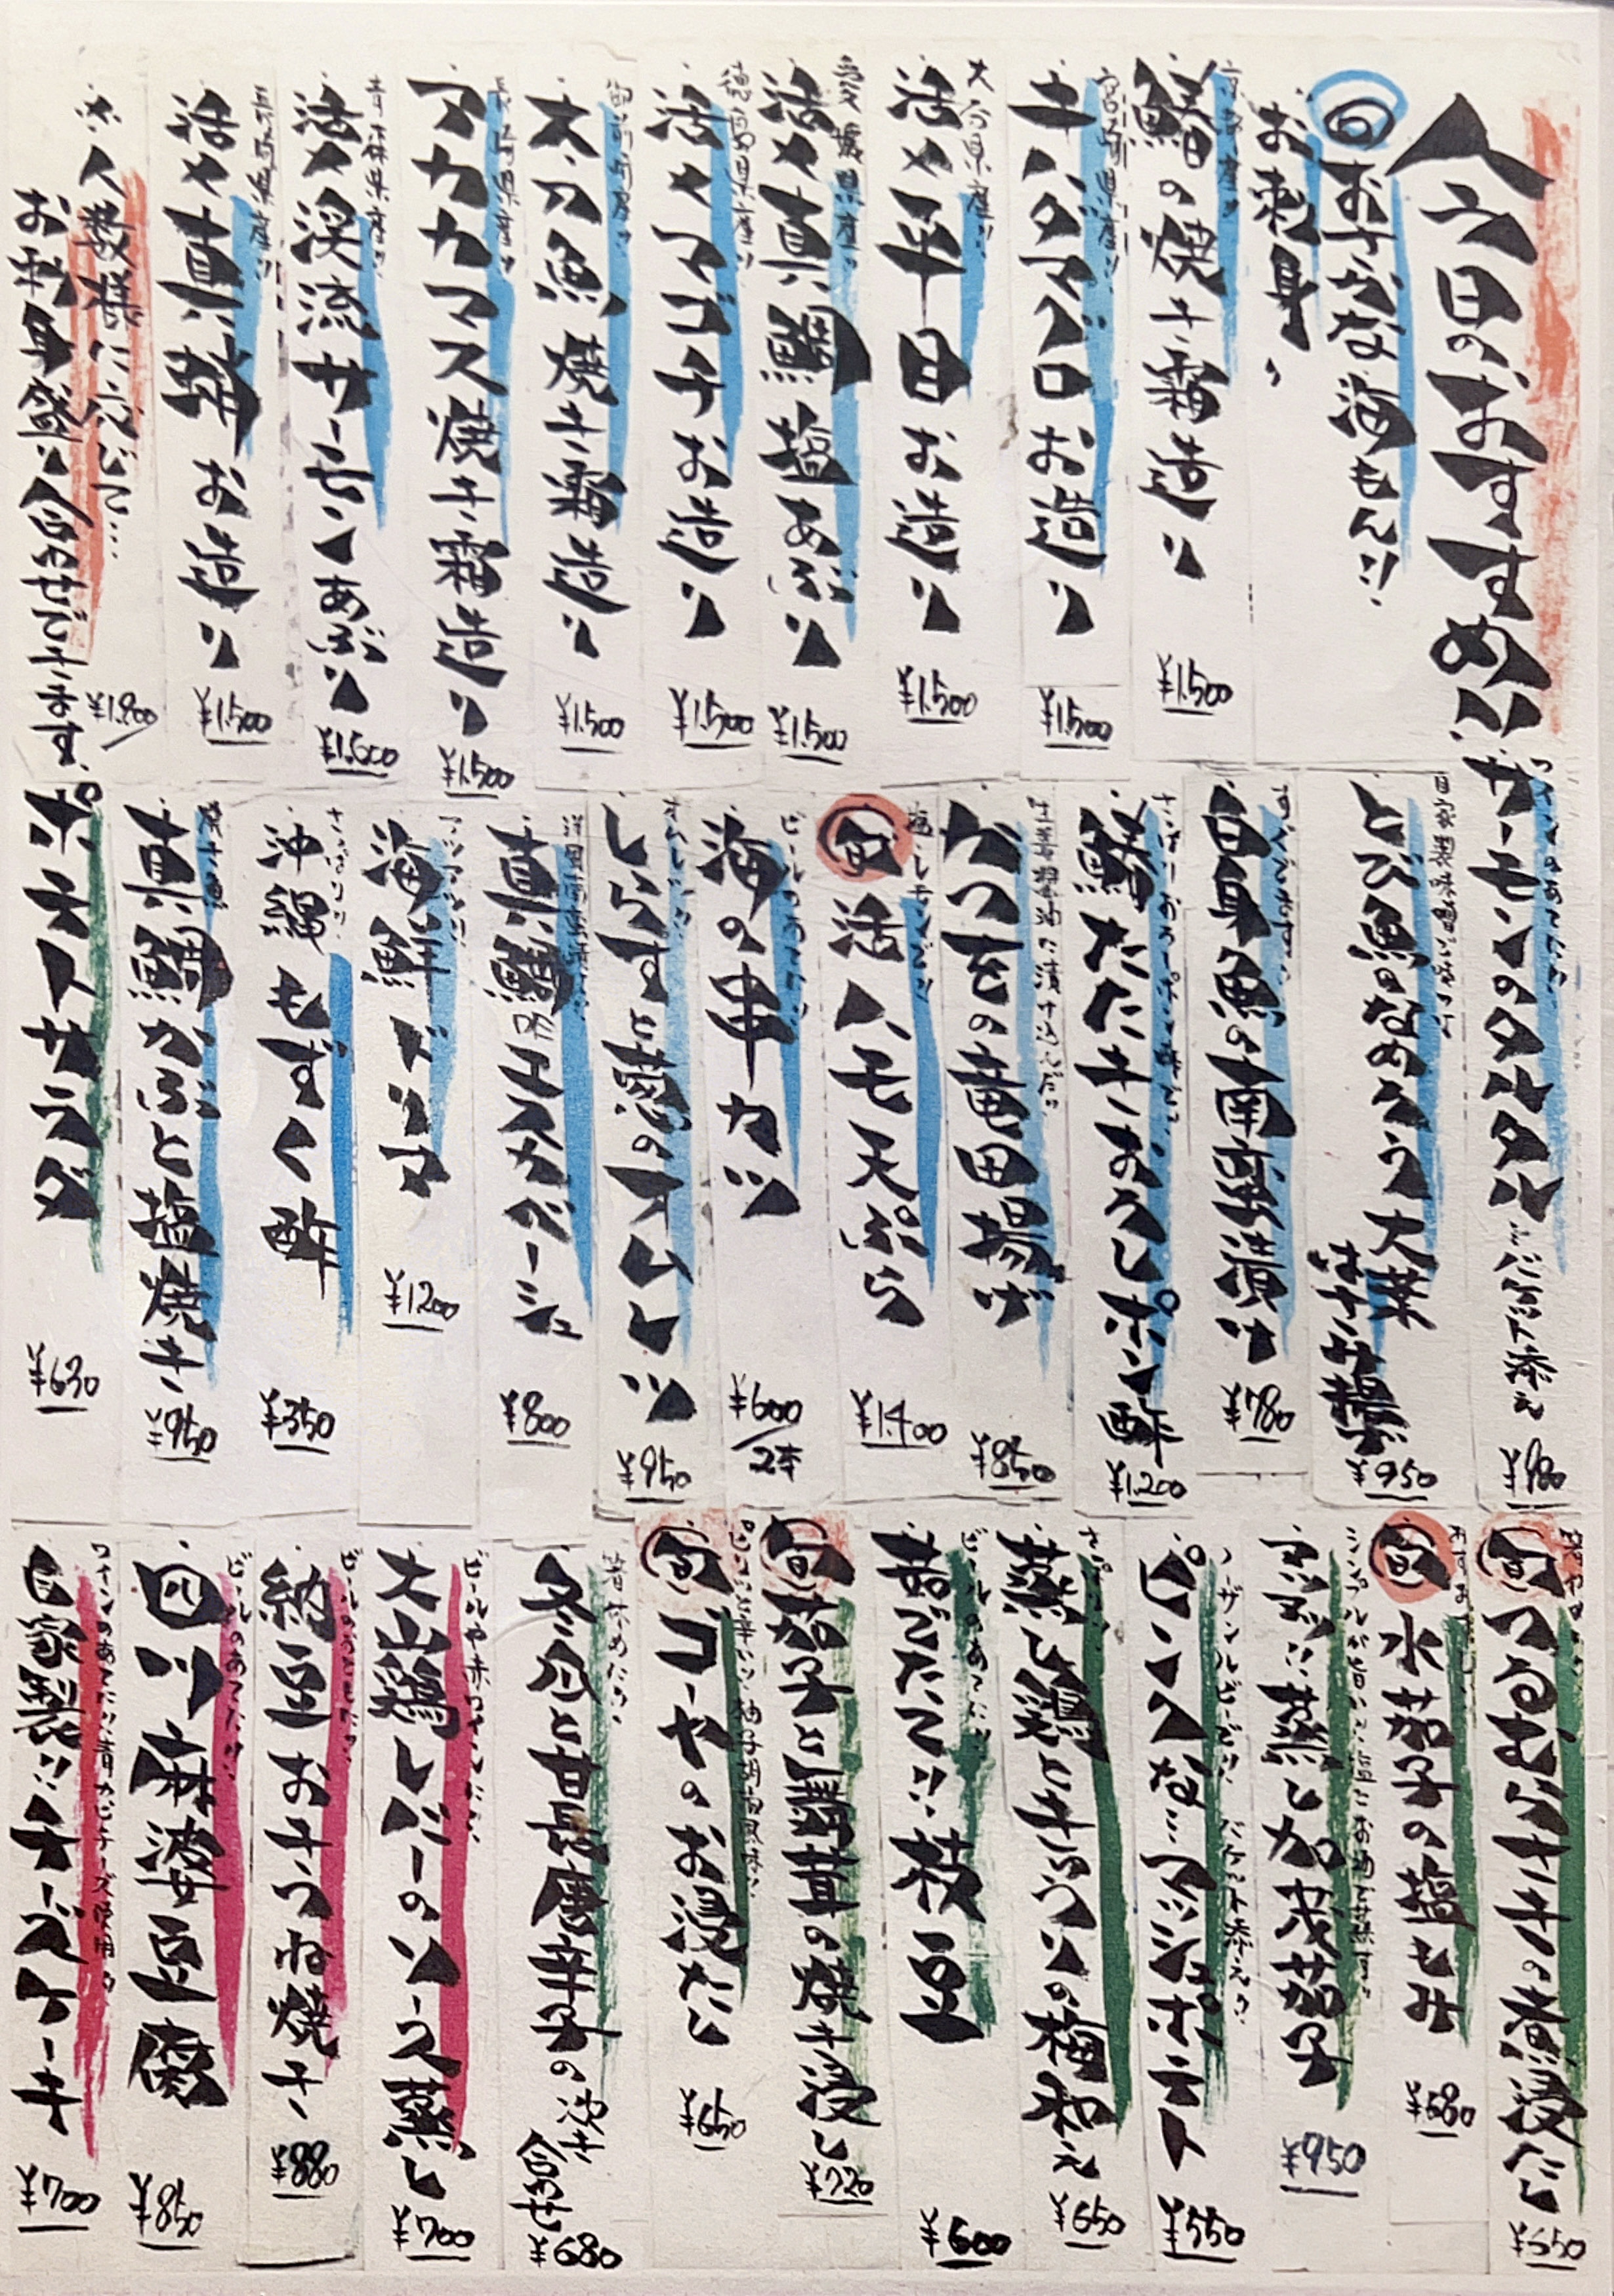 今日のおすすめ!!
旬 お手がな海もん!!
お刺身、
京都産!!
鰆の焼き霜造り
¥1,500
宮崎県産!!
キハダマグロお造り
¥1,500
大分県産!!
活〆平目お造り
¥1,500
愛媛県産!!
活〆真鯛塩あぶり
¥1,500
徳島県産!!
活〆マゴチお造り
¥1,500
太刀魚焼き霜造り
¥1,500
長崎県産!!
アカカマス焼き霜造り
¥1,500
青森県産!!
活〆渓流サーモンあぶり
¥1,500
長崎県産!!
活〆真鯖お造り
¥1,500
※人数様に応じて…
お刺身盛り合わせできます。
¥1,800
ワインのあてに!!
サーモンのタルタル…バケット添え
¥980
自家製味噌で味つけ
とび魚なめろう大葉はさみ揚げ
¥950
すぐできます!!
白身魚の南蛮漬け
¥780
さっぱりおろしポン酢で!!
鰆たたきおろしポン酢
¥1,200
生姜醤油に漬け込んだ!!
かつをの竜田揚げ
¥850
塩、レモンで!!
旬 活ハモ天ぷら
¥1,400
ビールのあてに!!
海の串カツ
¥600/2本
しらすと葱のオムレツ
¥950
真鯛のエスカベーシュ
¥800
アツアツ!!
海鮮ドリア
¥1200
さっぱり!!
沖縄もずく酢
¥350
焼き魚
真鯛かぶと塩焼き
¥950
ポテトサラダ
¥630
旬 つるむらさきの煮浸たし
¥550
おすすめ!!
旬 水茄子の塩もみ
¥680
シンプルが旨い!!塩とお醤油で
蒸し加茂茄子
¥950
ノーザンルビーを!!バケット添え!!
ピンクな…マッシュポテト
¥550
さっぱり!!
蒸し鶏ときゅうりの梅和え
¥650
ビールのあてに!!
茹でたて!!枝豆
¥600
旬 茄子と舞茸の焼き浸し
¥720
ピリッと辛い!!柚子胡椒風味!!
旬 ゴーヤのお浸たし
¥650
昔ながらの
冬瓜と甘長唐辛子の炊き合せ
¥680
ビールや赤ワインに!!
大山鶏レバーのソース蒸し
¥700
ビールのおともに!!
納豆おきつね焼き
¥880
ビールのあてに!!
四川麻婆豆腐
¥850
ワインのあてに!!青カビチーズ使用
自家製!!チーズケーキ
¥700